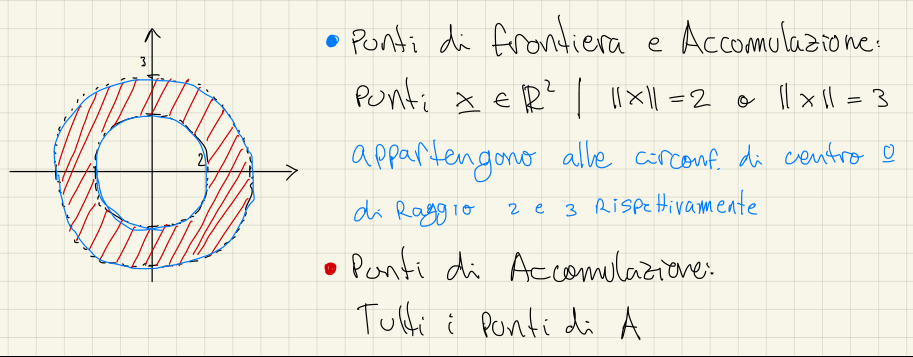 3
2
Punti di frontiera e Accomulazione:
Punti x ∈ ℝ² | ||x|| = 2 o ||x|| = 3
appartengono alle circonf. di centro 0
di Raggio 2 e 3 Rispettivamente
Punti di Accomulazione:
Tutti i punti di A